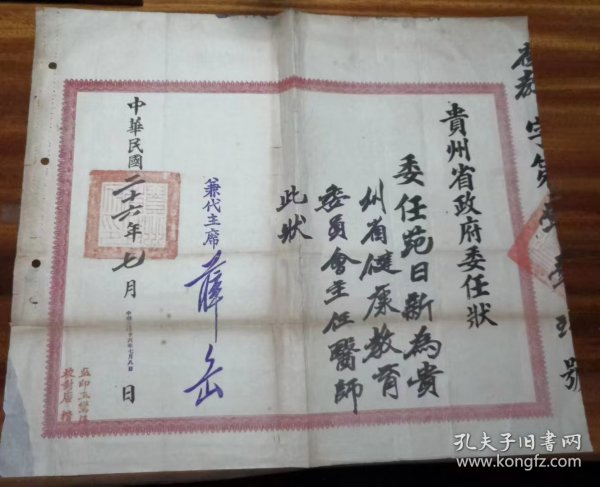 字第
號
貴州省政府委任狀
委任范日新為貴
州省健康教育
委員會主任醫師
此狀
兼代主席
薛岳
中華民國二十六年七月 日
中華民國二十六年七月八日
孔夫子旧书网
www.kongfz.com